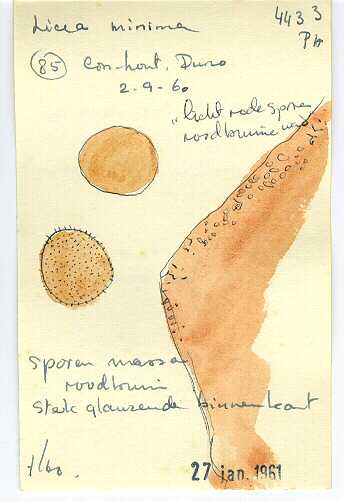 Licea minima
4433
(85) Con-hout, Duno
2-9-60
"licht rode sporen
roodbruine
sporen massa
roodbruin
sterk glanzende binnenkant
1/60.
27 jan. 1961